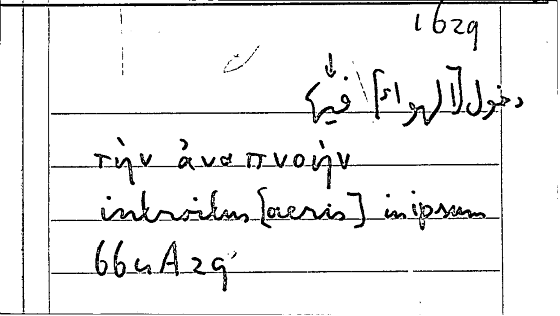 1629
دخول [الهواء] فيها
τὴν ἀναπνοὴν
introitus [aeris] in ipsum
664A29